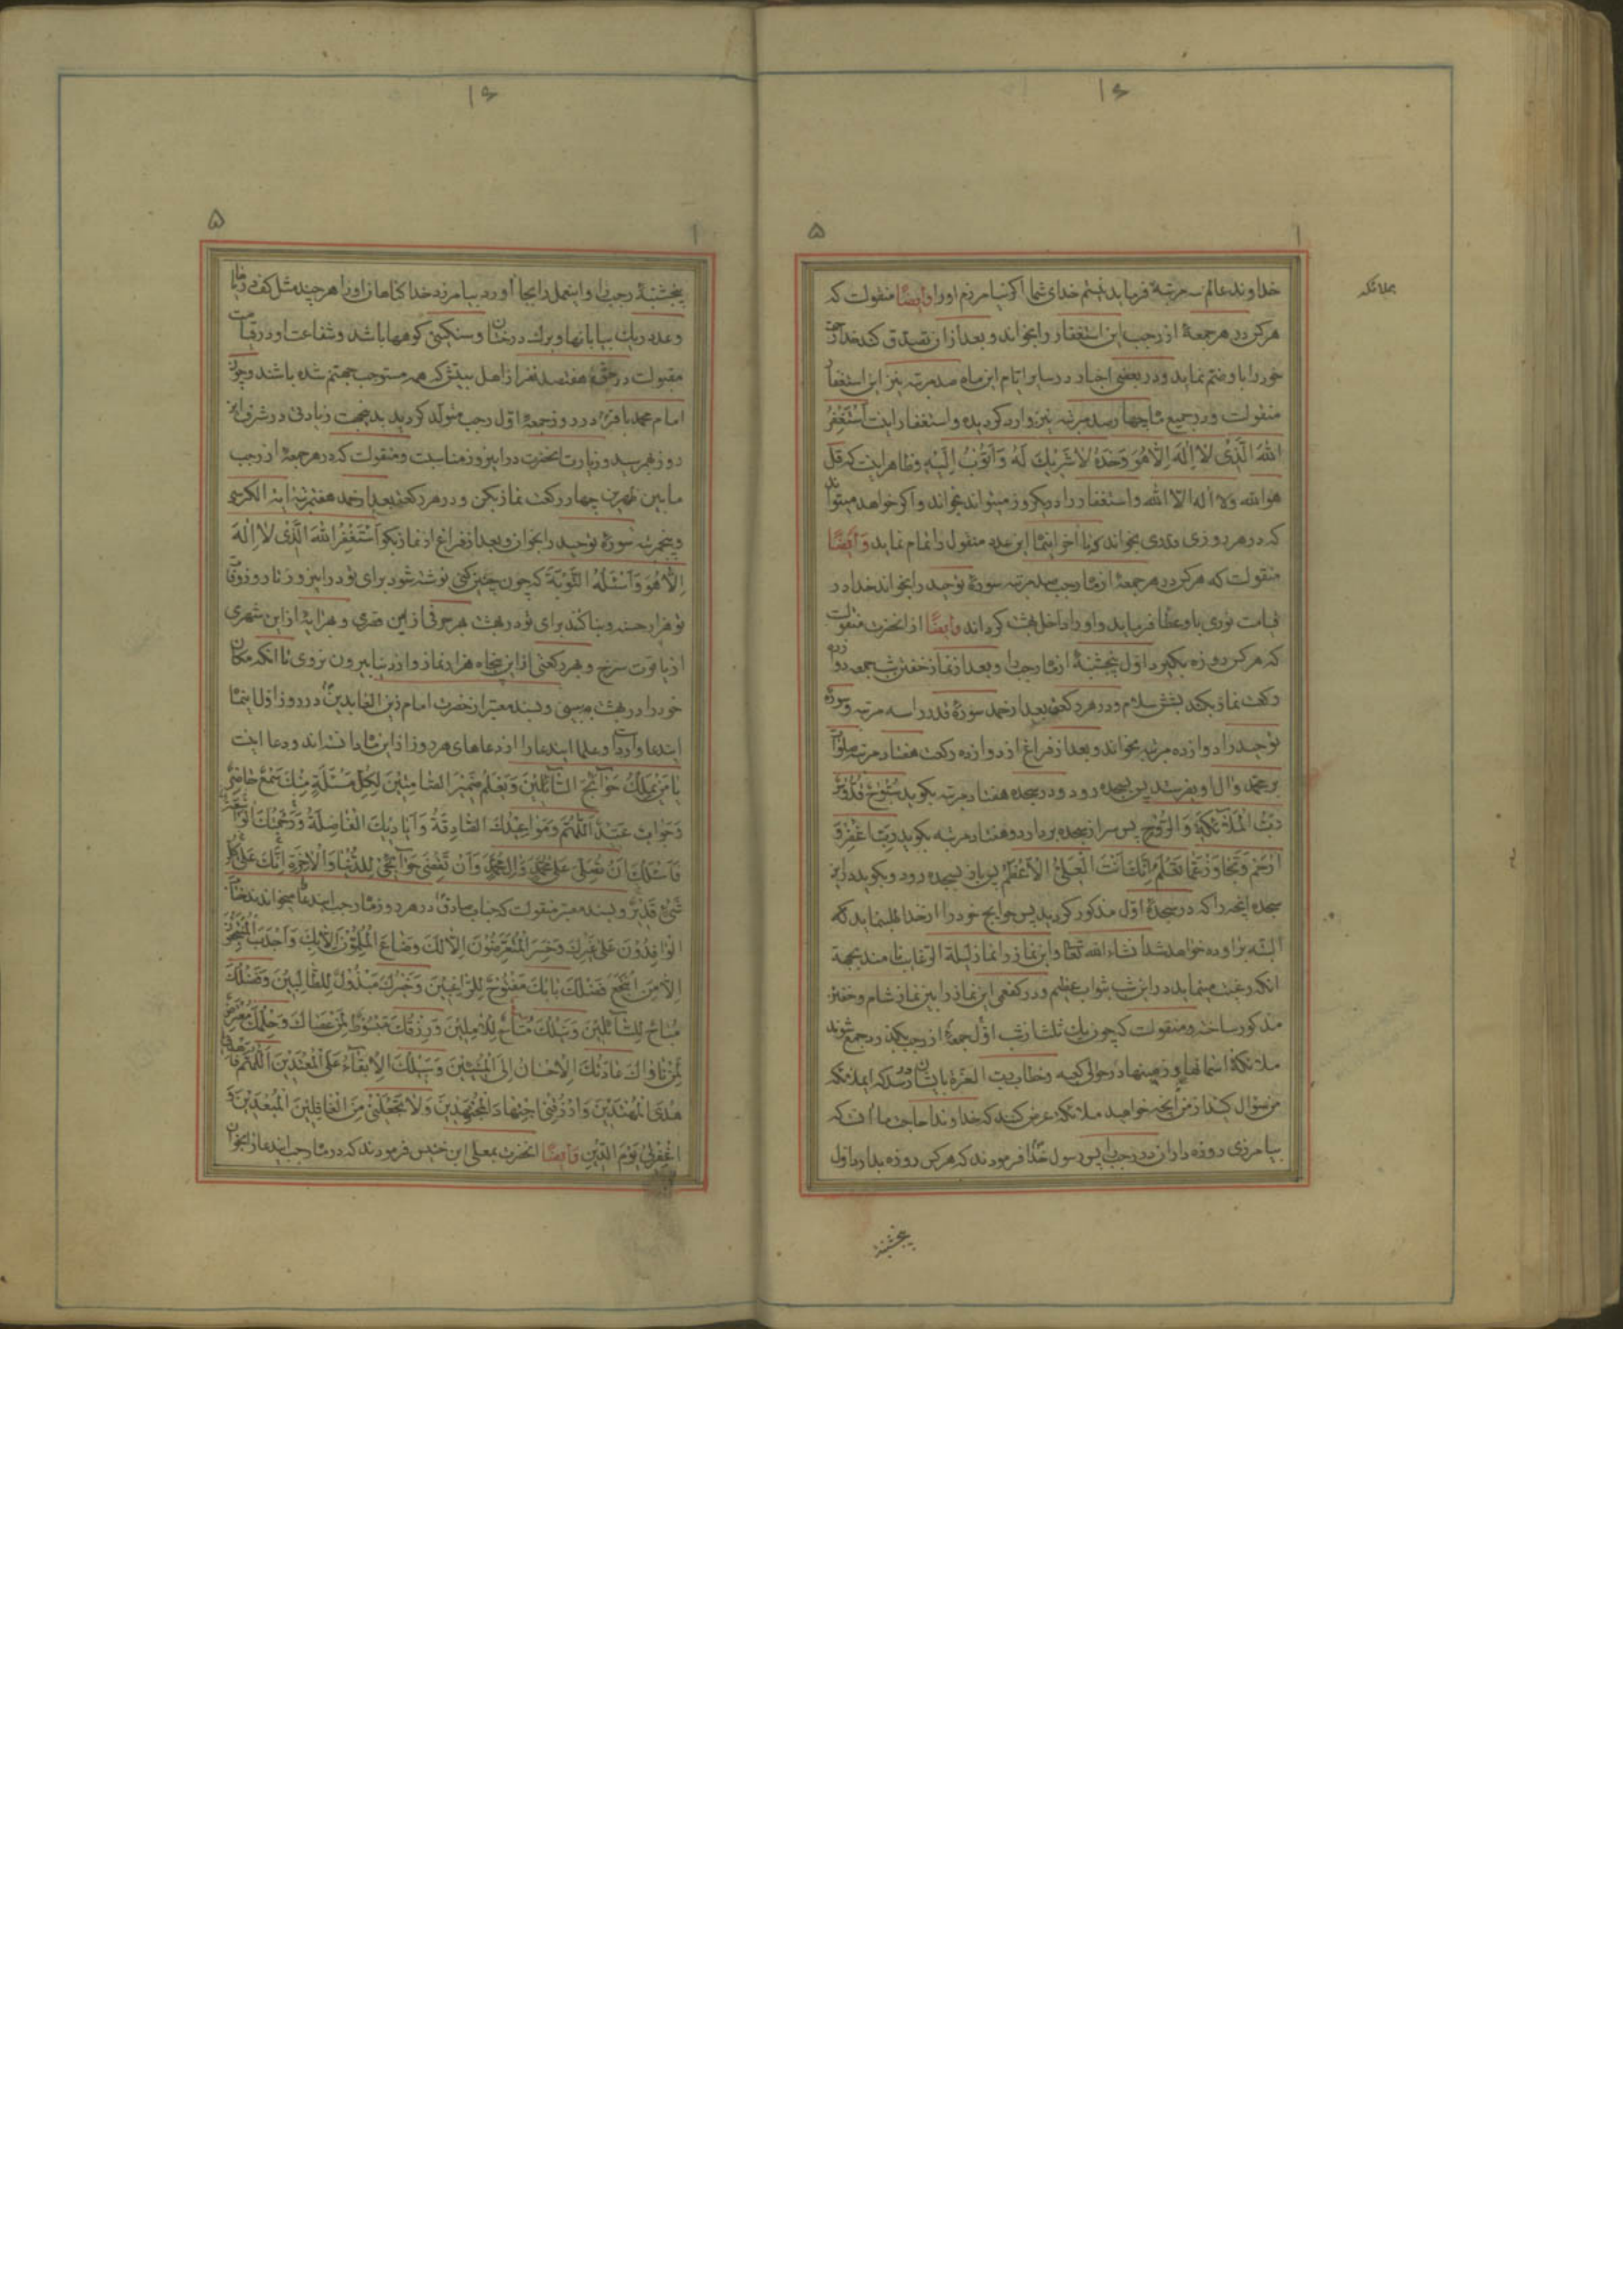 ۱۶
۵
۱
بملائکه
خداوند عالم سه مرتبه فرماید نیستم خدای شما اکر نیامرزم او را وایضا منقولست که
هرکس در هر جمعهٔ از رجب این استغفار را بخواند و بعد از آن تصدق کند خدا
خود را با و ختم نماید و در بعضی اخبار در سایر ایام این ماه صد مرتبه نیز این استغفار
منقولست و در جمیع ماه چهارصد مرتبه نیز وارد کردیده و استغفار اینست اَسْتَغْفِرُ
اللهَ الَّذِی لا اِلٰهَ اِلّا هُوَ وَحْدَهُ لا شَرِیكَ لَهُ وَ اَتُوبُ اِلَیْهِ و ظاهر اینست که قل
هوالله و لا اله الا الله و استغفار را در یکروز میتواند بخواند و اکر خواهد میتواند
که در هر روزی قدری بخواند تا آخر اینماه این عدد منقول را تمام نماید وَاَیْضًا
منقولست که هرکس در هر جمعهٔ از ماه رجب صد مرتبه سورهٔ توحید را بخواند خدا در
قیامت نوری باو عطا فرماید و او را داخل بهشت کرداند وایضًا از آنحضرت منقولست
که هر کس روزه بکیرد اول پنجشنبهٔ از ماه رجب را و بعد از نماز خفتن شب جمعه دوازده
رکعت نماز بکند بشش سلام و در هر رکعت بعد از حمد سورهٔ قدر را سه مرتبه و سورهٔ
توحید را دوازده مرتبه بخواند و بعد از فراغ از دوازده رکعت هفتاد مرتبه صلوات
بر محمد و آل او بفرستد پس بسجده رود و در سجده هفتاد مرتبه بکوید سُبُّوحٌ قُدُّوسٌ
رَبُّ الْمَلآئِکَةِ وَ الرُّوحِ پس سر از سجده بردارد و هفتاد مرتبه بکوید رَبِّ اغْفِرْ وَ
ارْحَمْ وَ تَجاوَزْ عَمّا تَعْلَمُ اِنَّكَ اَنْتَ الْعَلِیُّ الْاَعْظَمُ پس باز بسجده رود و بکوید در این
سجده آنچه را که در سجدهٔ اول مذکور کردید پس حوایج خود را از خدا طلب نماید که
البته براورده خواهد شد انشاءالله تعالی و این نماز را نماز لیلة الرغایب نامند بجهة
آنکه رغبت مینماید در این شب بثواب عظیم و در کفعمی این نماز را بین نماز شام و خفتن
مذکور ساخته و منقولست که چون یك ثلث از شب اول جمعهٔ از رجب بکذرد جمع شوند
ملائکهٔ اسمانها و زمینها در حوالی کعبه و خطاب رب العزة بایشان رسد که ایملائکه
من سؤال کنید از من آنچه خواهید ملائکه عرض کنند که خداوندا حاجت ما آنست که
بیامرزی روزه داران رجب را پس رسول خدا فرمودند که هر کس روزه بدارد اول
پنجشنبهٔ
۱۶
۵
۱
پنجشنبهٔ رجب را و اینعمل را بجا آورد بیامرزد خدا کناهان او را هر چند مثل کف دریا
و عدد ریك بیابانها و برك درختان و سنکینی کوهها باشد و شفاعت او در قیامت
مقبولست در حق هفتصد نفر از اهل بیتش که همه مستوجب جهنم شده باشند و چون
امام محمد باقر در روز جمعهٔ اول رجب متولد کردید بدینجهت زیادتی در شرف این
روز بهمرسید و زیارت آنحضرت در این روز مناسبست و منقولست که در هر جمعهٔ از رجب
ما بین ظهرین چهار رکعت نماز بکن و در هر رکعت بعد از حمد هفت مرتبه ایة الکرسی
و پنجمرتبه سورهٔ توحید را بخوان و بعد از فراغ از نماز بکو اَسْتَغْفِرُ اللهَ الَّذِی لا اِلٰهَ
اِلّا هُوَ وَ اَسْئَلُهُ التَّوْبَةَ که چون چنین کنی نوشته شود برای تو در این روز تا روز وفات
تو هزار حسنه و بنا کنند برای تو در بهشت هر حرفی از این قصری و بهر ایهٔ از این شهری
از یاقوت سرخ و بهر رکعتی از این پنجاه هزار نماز و از دنیا بیرون نروی تا آنکه مکان
خود را در بهشت ببینی و بسند معتبر از حضرت امام زین العابدین در روز اول اینماه
ایندعا وارد است و علما ایندعا را از دعاهای هر روز از این ماه دانسته اند و دعا اینست
یا مَنْ یَمْلِكُ حَوآئِجَ السّآئِلینَ وَ یَعْلَمُ ضَمیرَ الصّامِتینَ لِکُلِّ مَسْئَلَةٍ مِنْكَ سَمْعٌ حاضِرٌ
وَ جَوابٌ عَتیدٌ اَللّٰهُمَّ وَ مَواعیدُكَ الصّادِقَةُ وَ اَیادیكَ الْفاضِلَةُ وَ رَحْمَتُكَ الْواسِعَةُ
فَاَسْئَلُكَ اَنْ تُصَلِّیَ عَلی مُحَمَّدٍ وَ الِ مُحَمَّدٍ وَ اَنْ تَقْضِیَ حَوآئِجی لِلدُّنْیا وَ الْاخِرَةِ اِنَّكَ عَلی کُلِّ
شَیْءٍ قَدیرٌ و بسند معتبر منقولست که جناب صادق در هر روز ماه رجب ایندعا میخواندند خابَ
الْوافِدُونَ عَلی غَیْرِكَ وَ خَسِرَ الْمُتَعَرِّضُونَ اِلّا لَكَ وَ ضاعَ الْمُلِمُّونَ اِلّا بِكَ وَ اَجْدَبَ الْمُنْتَجِعُونَ
اِلّا مَنِ انْتَجَعَ فَضْلَكَ بابُكَ مَفْتُوحٌ لِلرّاغِبینَ وَ خَیْرُكَ مَبْذُولٌ لِلطّالِبینَ وَ فَضْلُكَ
مُباحٌ لِلسّآئِلینَ وَ نَیْلُكَ مُتاحٌ لِلْامِلینَ وَ رِزْقُكَ مَبْسُوطٌ لِمَنْ عَصاكَ وَ حِلْمُكَ مُعْتَرِضٌ
لِمَنْ ناواكَ عادَتُكَ الْاِحْسانُ اِلَی الْمُسیئینَ وَ سَبیلُكَ الْاِبْقآءُ عَلَی الْمُعْتَدینَ اَللّٰهُمَّ فَاهْدِنی
هُدَی الْمُهْتَدینَ وَ ارْزُقْنِی اجْتِهادَ الْمُجْتَهِدینَ وَ لا تَجْعَلْنی مِنَ الْغافِلینَ الْمُبْعَدینَ وَ
اغْفِرْ لی یَوْمَ الدّینِ وَایضًا آنحضرت بمعلی ابن خنیس فرمودند که در ماه رجب ایندعا را بخوان